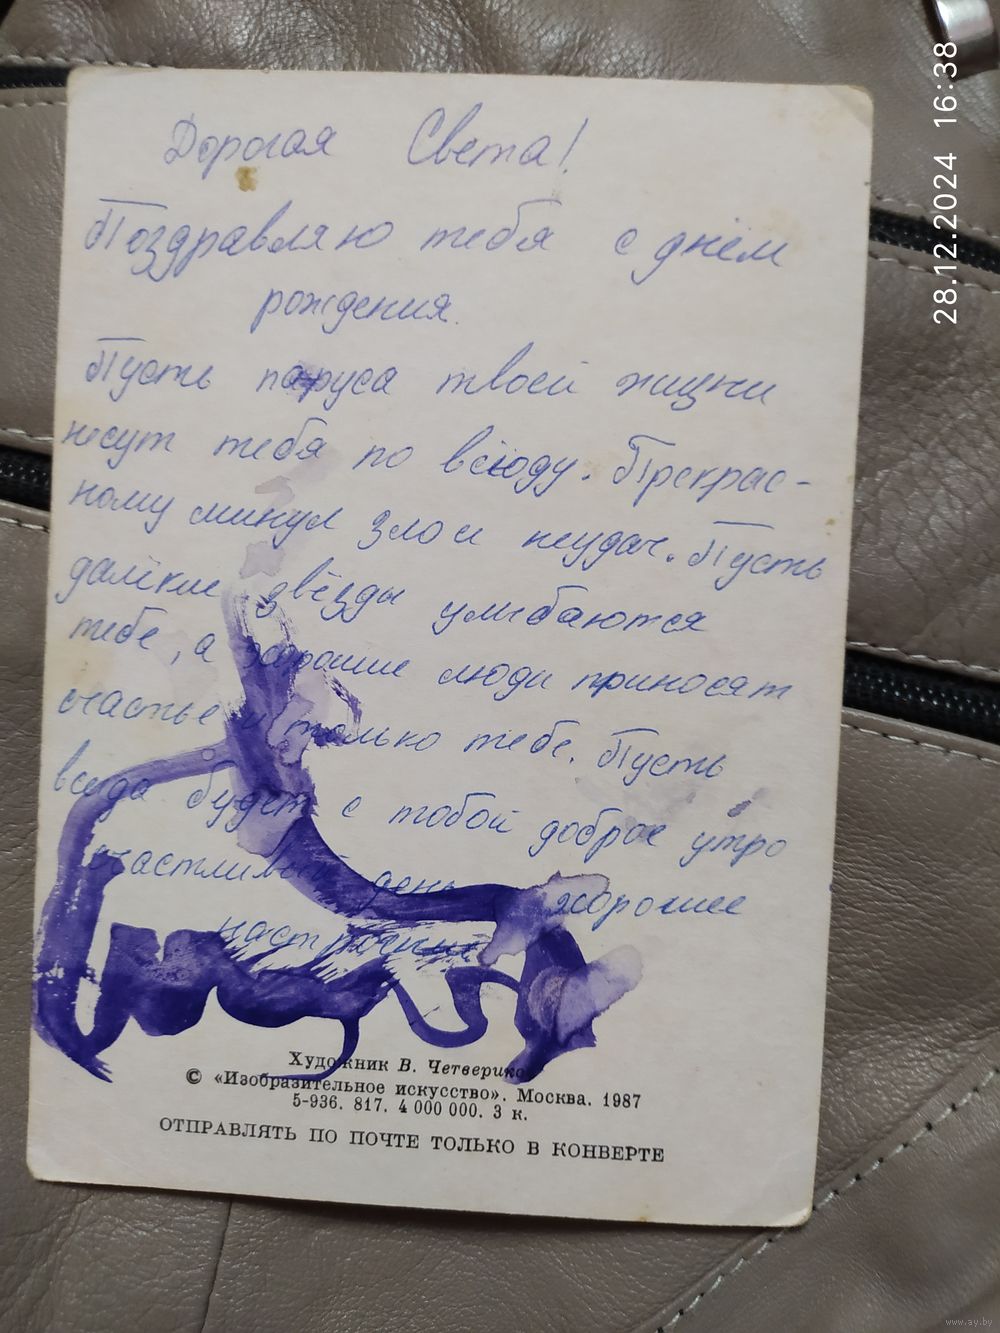 Дорогая Света!
Поздравляю тебя с днём
рождения.
Пусть паруса твоей жизни
несут тебя по всюду. Прекрас-
ному минул зло и неудач. Пусть
далёкие звёзды улыбаются
тебе, а хорошие люди приносят
счастье и только тебе. Пусть
всегда будет с тобой доброе утро
счастливый день хорошее
настроение
Художник В. Четвериков
© «Изобразительное искусство». Москва. 1987
5-936. 817. 4 000 000. 3 к.
ОТПРАВЛЯТЬ ПО ПОЧТЕ ТОЛЬКО В КОНВЕРТЕ
28.12.2024 16:38
www.ay.by